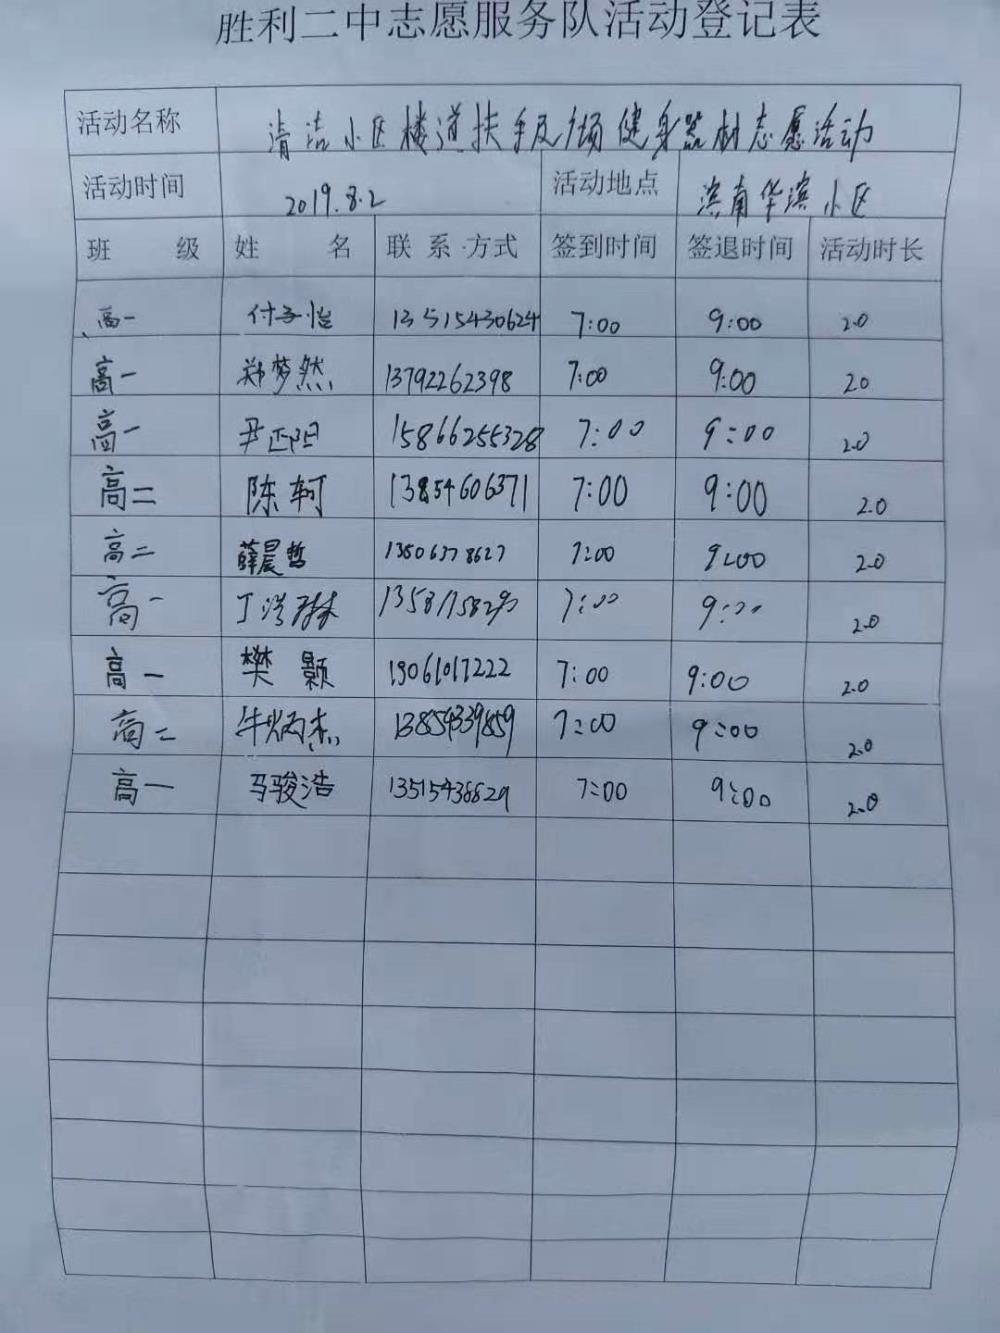 胜利二中志愿服务队活动登记表
活动名称 清洁小区楼道扶手及广场健身器材志愿活动
活动时间 2019.8.2 活动地点 滨南华滨小区
班 级 姓 名 联系·方式 签到时间 签退时间 活动时长
高一 付子怡 13515430624 7:00 9:00 2.0
高一 郑梦然 13792262398 7:00 9:00 20
高一 尹正阳 15866255328 7:00 9:00 2.0
高二 陈轲 13854606371 7:00 9:00 2.0
高二 薛晨哲 7:00 9:00 2.0
高一 7:00 9:00 2.0
高一 樊颢 19061017222 7:00 9:00 2.0
高二 牛炳杰 13854339859 7:00 9:00 2.0
高一 马骏浩 7:00 9:00 2.0